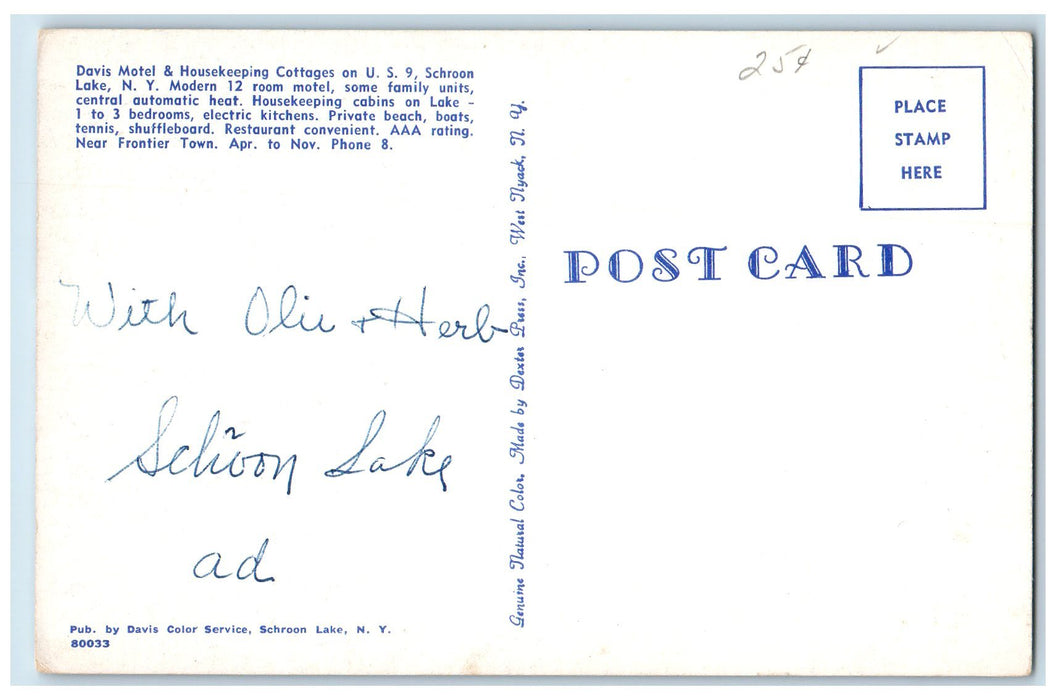 Davis Motel & Housekeeping Cottages on U. S. 9, Schroon
Lake, N. Y. Modern 12 room motel, some family units,
central automatic heat. Housekeeping cabins on Lake -
1 to 3 bedrooms, electric kitchens. Private beach, boats,
tennis, shuffleboard. Restaurant convenient. AAA rating.
Near Frontier Town. Apr. to Nov. Phone 8.
With Olie + Herb
Schroon Lake
ad
Pub. by Davis Color Service, Schroon Lake, N. Y.
80033
Genuine Natural Color, Made by Dexter Press, Inc., West Nyack, N. Y.
25¢
PLACE
STAMP
HERE
POST CARD